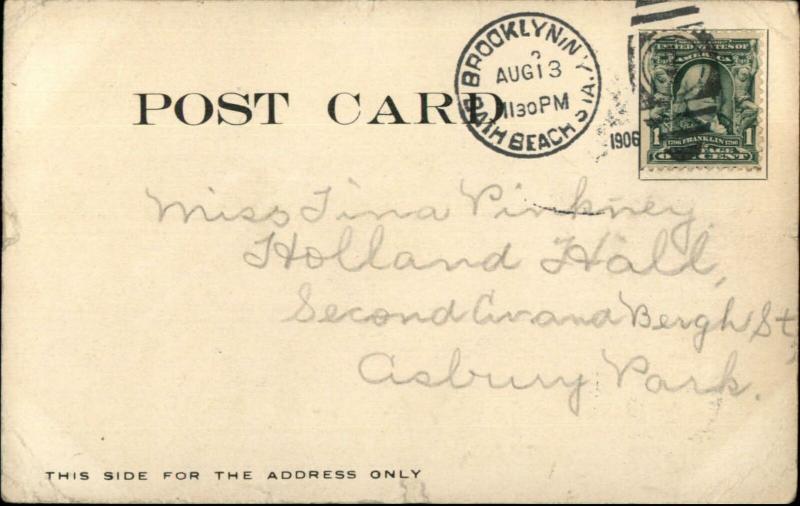 BROOKLYN, N.Y.
AUG 13
11 30 PM
BATH BEACH STA.
1906
UNITED STATES OF
AMERICA
1 1706 FRANKLIN 1790 1
POSTAGE
ONE CENT
POST CARD
Miss Tina Pinkney
Holland Hall,
Second Av and Bergh St,
Asbury Park.
THIS SIDE FOR THE ADDRESS ONLY